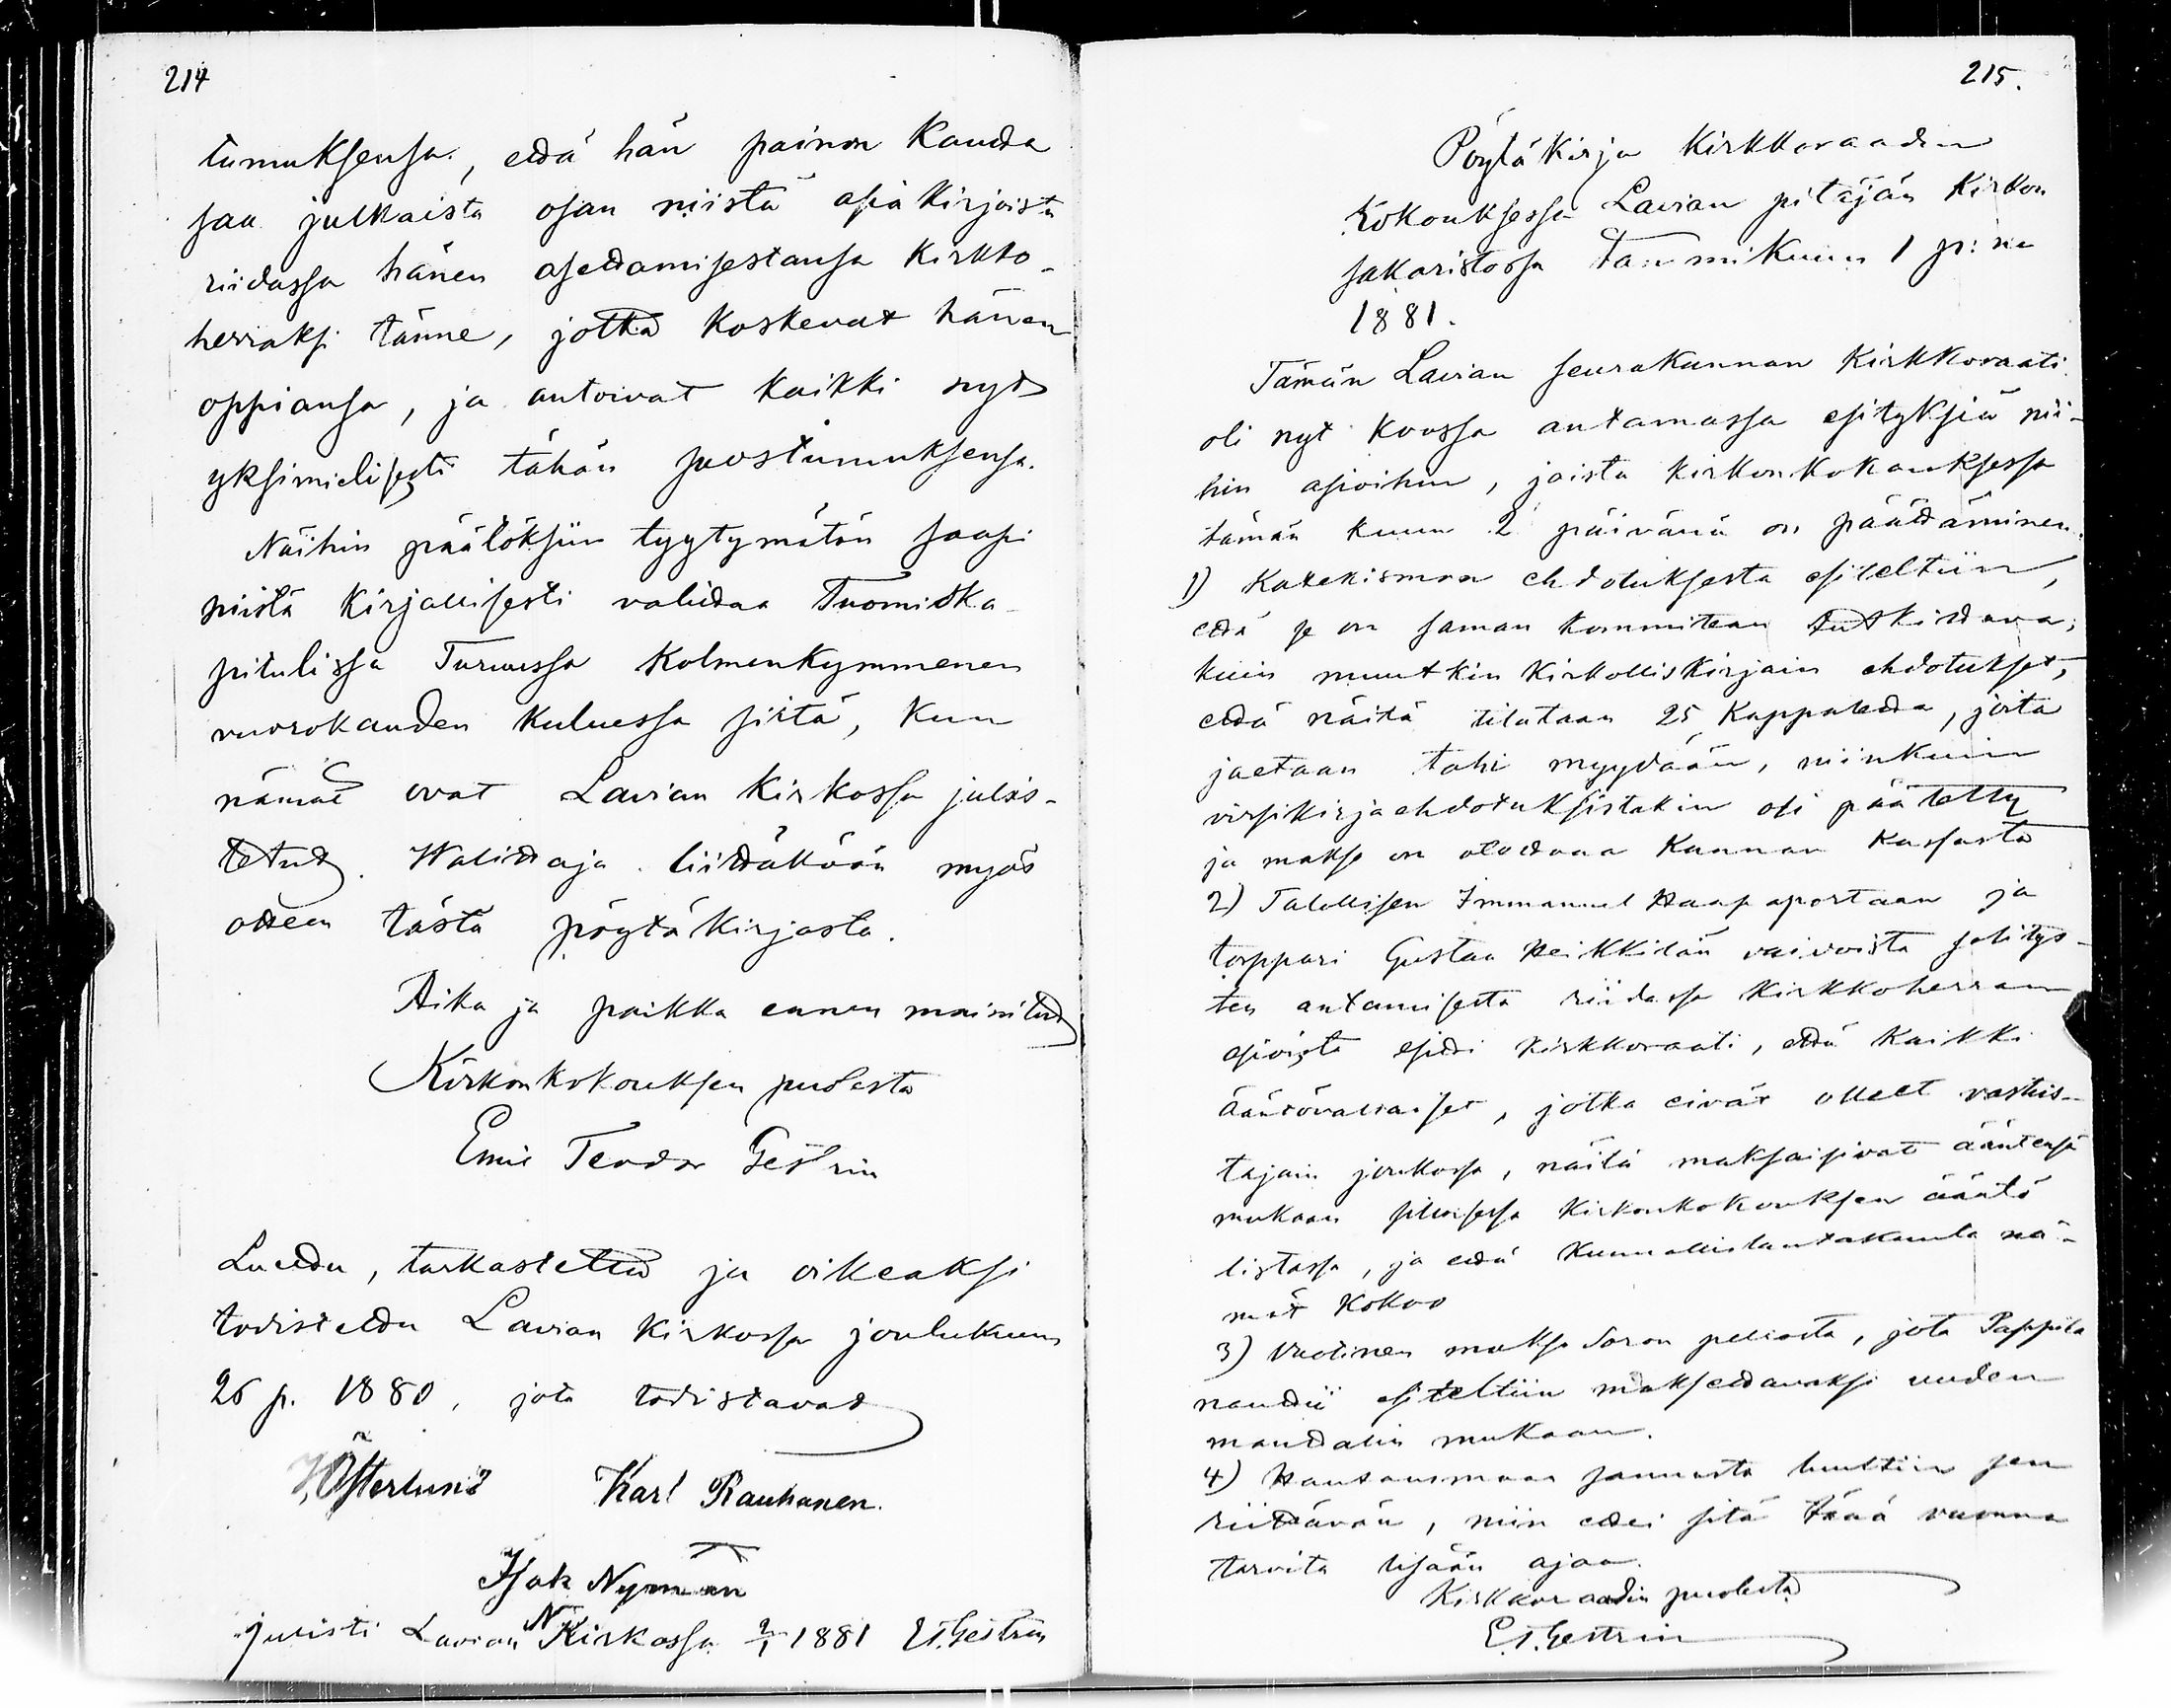 214
tumuksensa, että hän painon kautta
saa julkaista osan niistä asiakirjoista
riidassa hänen asettamisestansa kirkko-
herraksi tänne, jotka koskevat hänen
oppiansa, ja antoivat kaikki nyt
yksimielisesti tähän suostumuksensa.
Näihin päätöksiin tyytymätön saapi
niistä kirjallisesti valittaa Tuomioka-
pitulissa Turussa kolmenkymmenen
vuorokauden kuluessa siitä, kun
nämät ovat Lavian kirkossa julis-
tetut. Walittaja liittäköön myös
otteen tästä pöytäkirjasta.
Aika ja paikka ennen mainitut
Kirkonkokouksen puolesta
Emil Teodor Gestrin
Luettu, tarkastettu ja oikeaksi
todistettu Lavian kirkossa joulukuun
26 p. 1880, jota todistavat
Österlund Karl Rauhanen.
Isak Nyman
Julisti Lavian Kirkossa 2/1 1881 E.T. Gestrin
215.
Pöytäkirja Kirkkoraadin
kokouksessa Lavian pitäjän kirkon
sakaristossa Tammikuun 1 p:nä
1881.
Tämän Lavian seurakunnan Kirkkoraati
oli nyt koossa antamassa esityksiä nii-
hin asioihin, joista kirkonkokouksessa
tämän kuun 2 päivänä on päättäminen.
1) Katekismon ehdotuksesta esiteltiin,
että se on saman kommitean tutkittava,
kuin muutkin kirkolliskirjain ehdotukset,
että näitä tilataan 25 kappaletta, joita
jaetaan tahi myydään, niinkuin
virsikirjaehdotuksistakin oli päätetty
ja maksu on otettava kunnan kassasta
2) Talollisen Immanuel Haapaportaan ja
torppari Gustaa Heikkilän vaivoista selitys-
ten antamisesta riidassa kirkkoherran
asioista esitti kirkkoraati, että kaikki
äänivaltaiset, jotka eivät olleet vastus-
tajain joukossa, näitä maksaisivat ääntensä
mukaan silloisessa kirkonkokouksen ääntö
listassa, ja että kunnallislautakunta nä-
mät kokoo
3) Vuotinen maksu Soron pellosta, jota Pappila
nauttii esiteltiin maksettavaksi uuden
manttalin mukaan.
4) Hautausmaan sannasta luultiin sen
riittävän, niin ettei sitä tänä vuonna
tarvita lisään ajaa.
Kirkkoraadin puolesta
E.T. Gestrin